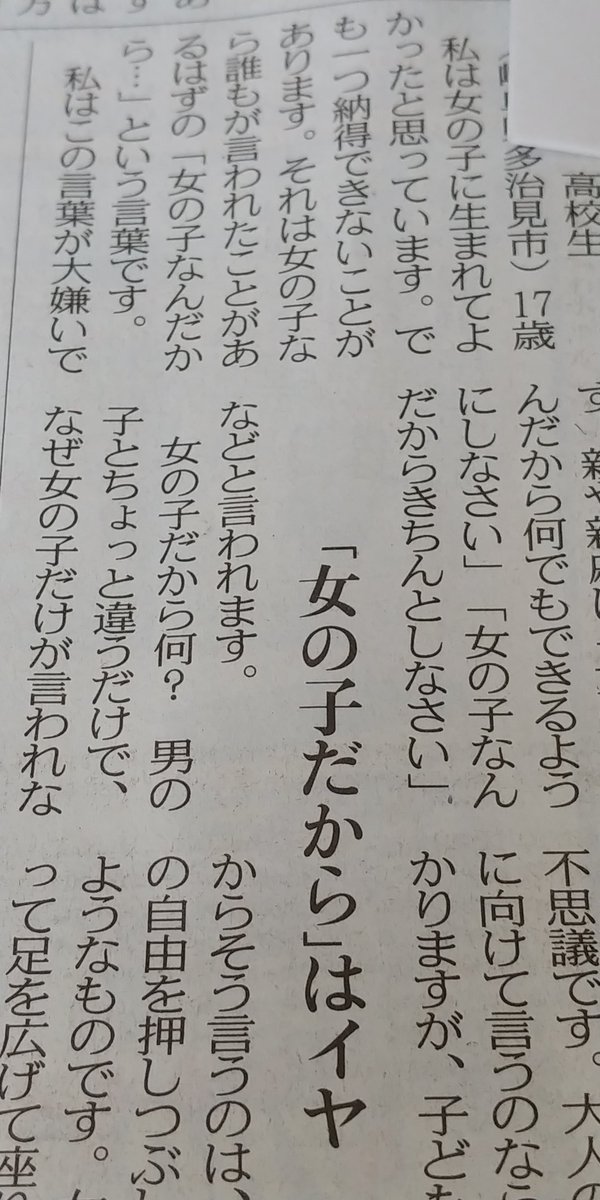 高校生
多治見市）17歳
私は女の子に生まれてよ
かったと思っています。で
も一つ納得できないことが
あります。それは女の子な
ら誰もが言われたことがあ
るはずの「女の子なんだか
ら…」という言葉です。
私はこの言葉が大嫌いで
んだから何でもできるよう
にしなさい」「女の子なん
だからきちんとしなさい」
「女の子だから」はイヤ
などと言われます。
女の子だから何？　男の
子とちょっと違うだけで、
なぜ女の子だけが言われな
不思議です。大人
に向けて言うのなら
かりますが、子ど
からそう言うのは、
の自由を押しつぶ
ようなものです。
って足を広げて座